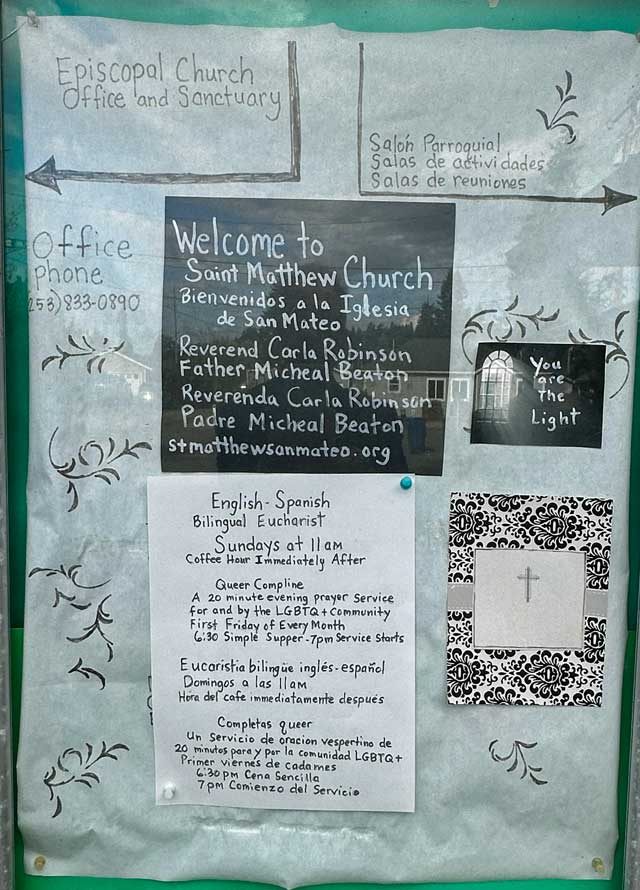 Episcopal Church
Office and Sanctuary
Salón Parroquial
Salas de actividades
Salas de reuniones
Office
phone
(253)833-0890
Welcome to
Saint Matthew Church
Bienvenidos a la Iglesia
de San Mateo
Reverend Carla Robinson
Father Micheal Beaton
Reverenda Carla Robinson
Padre Micheal Beaton
stmatthewsanmateo.org
You
are
the
Light
English-Spanish
Bilingual Eucharist
Sundays at 11am
Coffee Hour Immediately After
Queer Compline
A 20 minute evening prayer service
for and by the LGBTQ+ Community
First Friday of Every Month
6:30 Simple Supper-7pm Service Starts
Eucaristia bilingüe inglés-español
Domingos a las 11am
Hora del cafe immediatamente después
Completas queer
Un Servicio de oracion vespertino de
20 minutos para y por la comunidad LGBTQ+
Primer viernes de cada mes
6:30pm Cena Sencilla
7pm Comienzo del Servicio